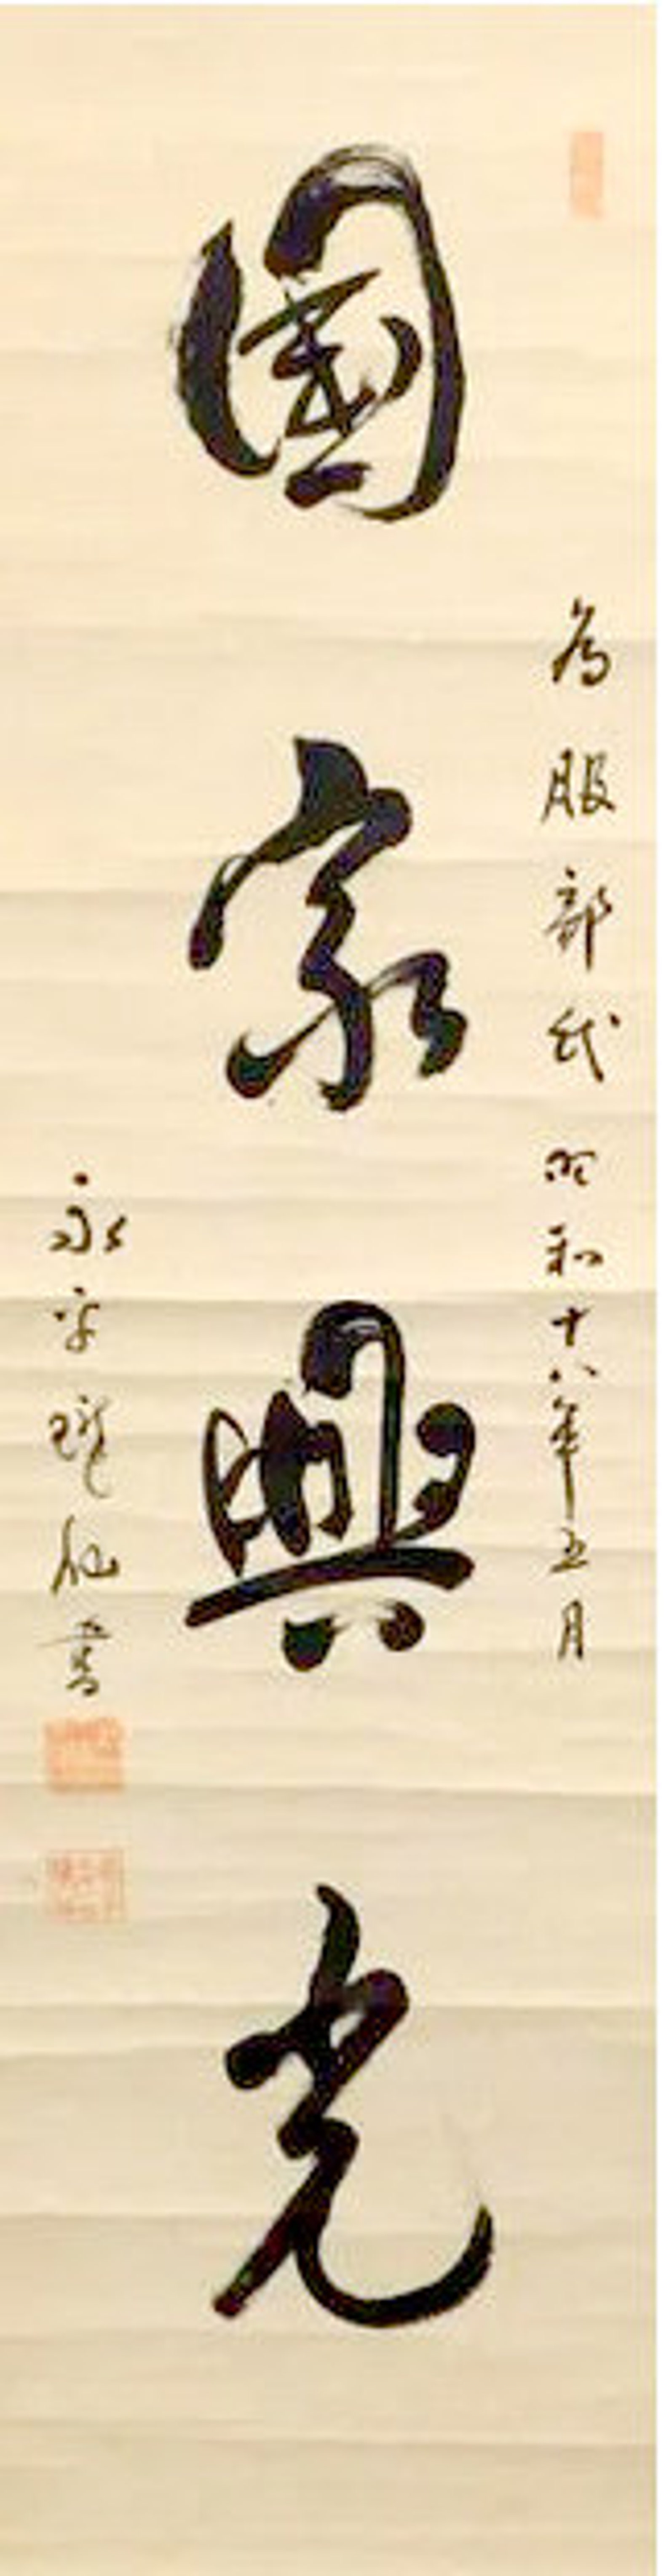 為服部氏 昭和十八年五月
國家興光
永平瓏仙書